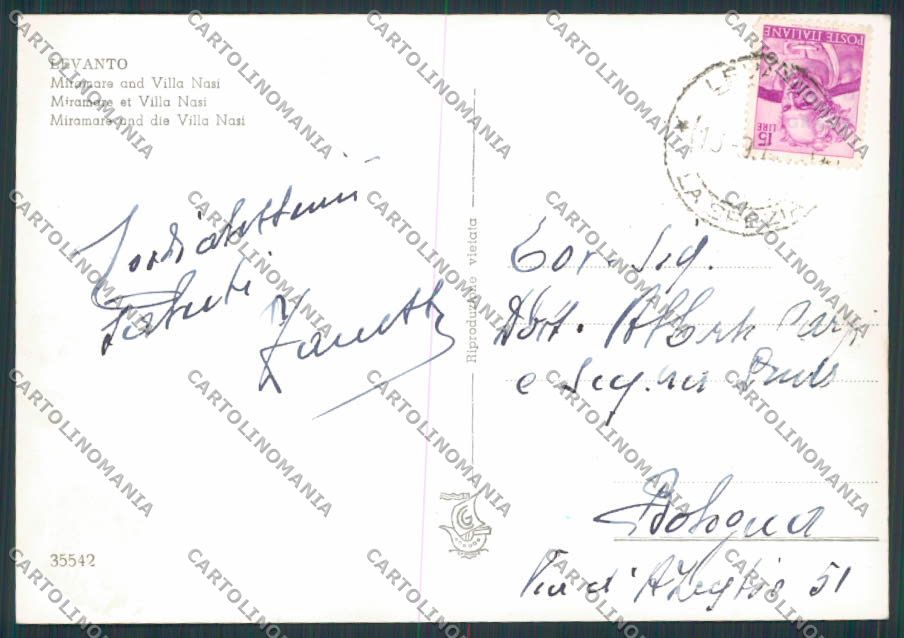 LEVANTO
Miramare and Villa Nasi
Miramare et Villa Nasi
Miramare und die Villa Nasi
Cordialissimi
Saluti
Zanetti
35542
Riproduzione vietata
POSTE ITALIANE
15
LIRE
LEVANTO
LA SPEZIA
Gor. Sig.
Dott. Alberto
e Sig.ra
Bologna
Via d'Azeglio 51
CARTOLINOMANIA